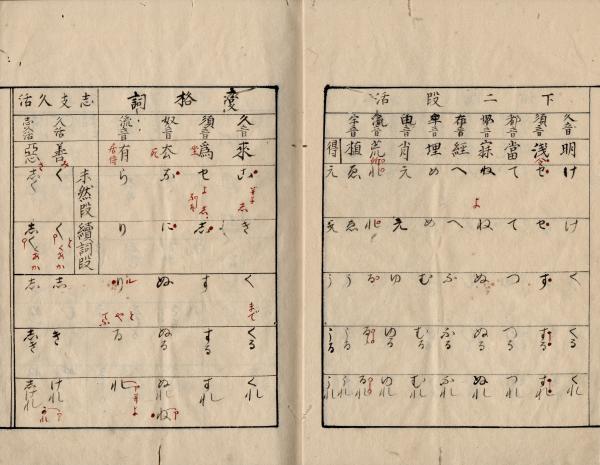 下二段活
久音 明 け け く くる くれ
須音 浅 せ せ す する すれ
都音 當 て て つ つる つれ
奴音 寐 ね ね ぬ ぬる ぬれ
布音 經 へ へ ふ ふる ふれ
牟音 埋 め め む むる むれ
由音 肖 え え ゆ ゆる ゆれ
流音 荒 れ れ る るる るれ
宇音 植 ゑ ゑ う うる うれ
得 え え う うる うれ
變格詞
久音 來 こ き く くる くれ
須音 為 せ し す する すれ
奴音 去 な に ぬ ぬる ぬれ ね
流音 有 ら り り る れ
志支久活
未然段 續詞段
久活 善 く く し き けれ
志久活 惡 しく しく し しき しけれ